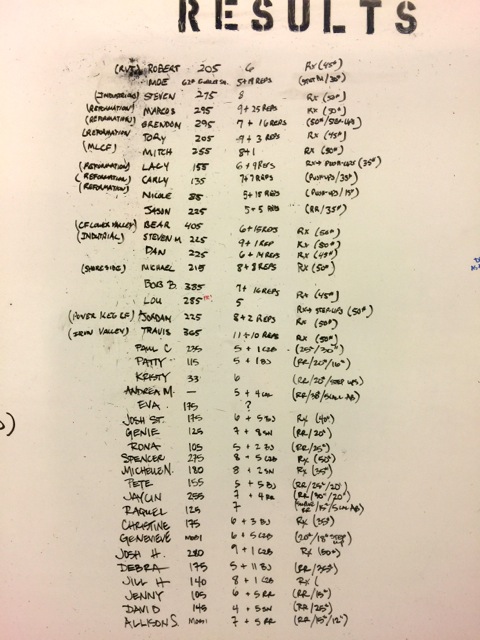 RESULTS
ROBERT 205 6 RX (45#)
MOE 5+14 REPS
(INDUSTRIAL) STEVEN 275 8 RX (50#)
(REFORMATION) MARCOS 295 9+25 REPS RX (50#)
(REFORMATION) BRENDON 295 7+16 REPS (50#/STEP UPS)
(REFORMATION) TORY 205 9+3 REPS RX (45#)
(MLCF) MITCH 255 8+1 RX (50#)
(REFORMATION) LACY 155 6+9 REPS RX+ PUSH-UPS (35#)
(REFORMATION) CARLY 135 7+7 REPS (PUSH-UPS/35#)
(REFORMATION) NICOLE 85 5+18 REPS (PUSH-UPS/15#)
JASON 225 5+5 REPS (RR/35#)
(CF LOWER VALLEY) BEAR 405 6+15 REPS RX (50#)
(INDUSTRIAL) STEVEN M 225 9+1 REP RX (50#)
DAN 225 6+14 REPS RX (45#)
(SHORESIDE) MICHAEL 215 8+8 REPS RX (50#)
BOB B. 385 7+16 REPS
LOU 285 5 RX (45#)
(POWER KEG CF) JORDAN 225 8+2 REPS RX+ STEP-UPS (50#)
(IRON VALLEY) TRAVIS 365 11+10 REPS RX (50#)
PAUL C 235 5+1 RX (50#)
PATTY 115 5+1 BJ (RR/20#/16")
KRISTY 33 6 (RR/20#/STEP UPS)
ANDREA M. — 5+4
EVA 175 ?
JOSH ST. 175 6+5 BJ RX (40#)
GENIE 125 7+8 SN (RR/20#)
RONA 105 5+2 BJ (RR/25#)
SPENCER 275 8+5 C2B RX (50#)
MICHELLE N. 180 8+2 SN RX (35#)
PETE 155 5+5 BJ (RR/25#/20")
JAYLIN 255 7+4 RR
RAQUEL 125 7
CHRISTINE 175 6+3 BJ RX (35#)
GENEVIEVE 6+5 C2B (20#/18" STEP UP)
JOSH H. 280 9+1 C2B RX (50#)
DEBRA 175 5+11 BJ (RR/35#)
JILL H 140 8+1 C2B RX (
JENNY 105 6+5 RR (RR/15#)
DAVID 145 4+5 SN (RR/25#)
ALLISON S. 7+5 RR (RR/15#/12")